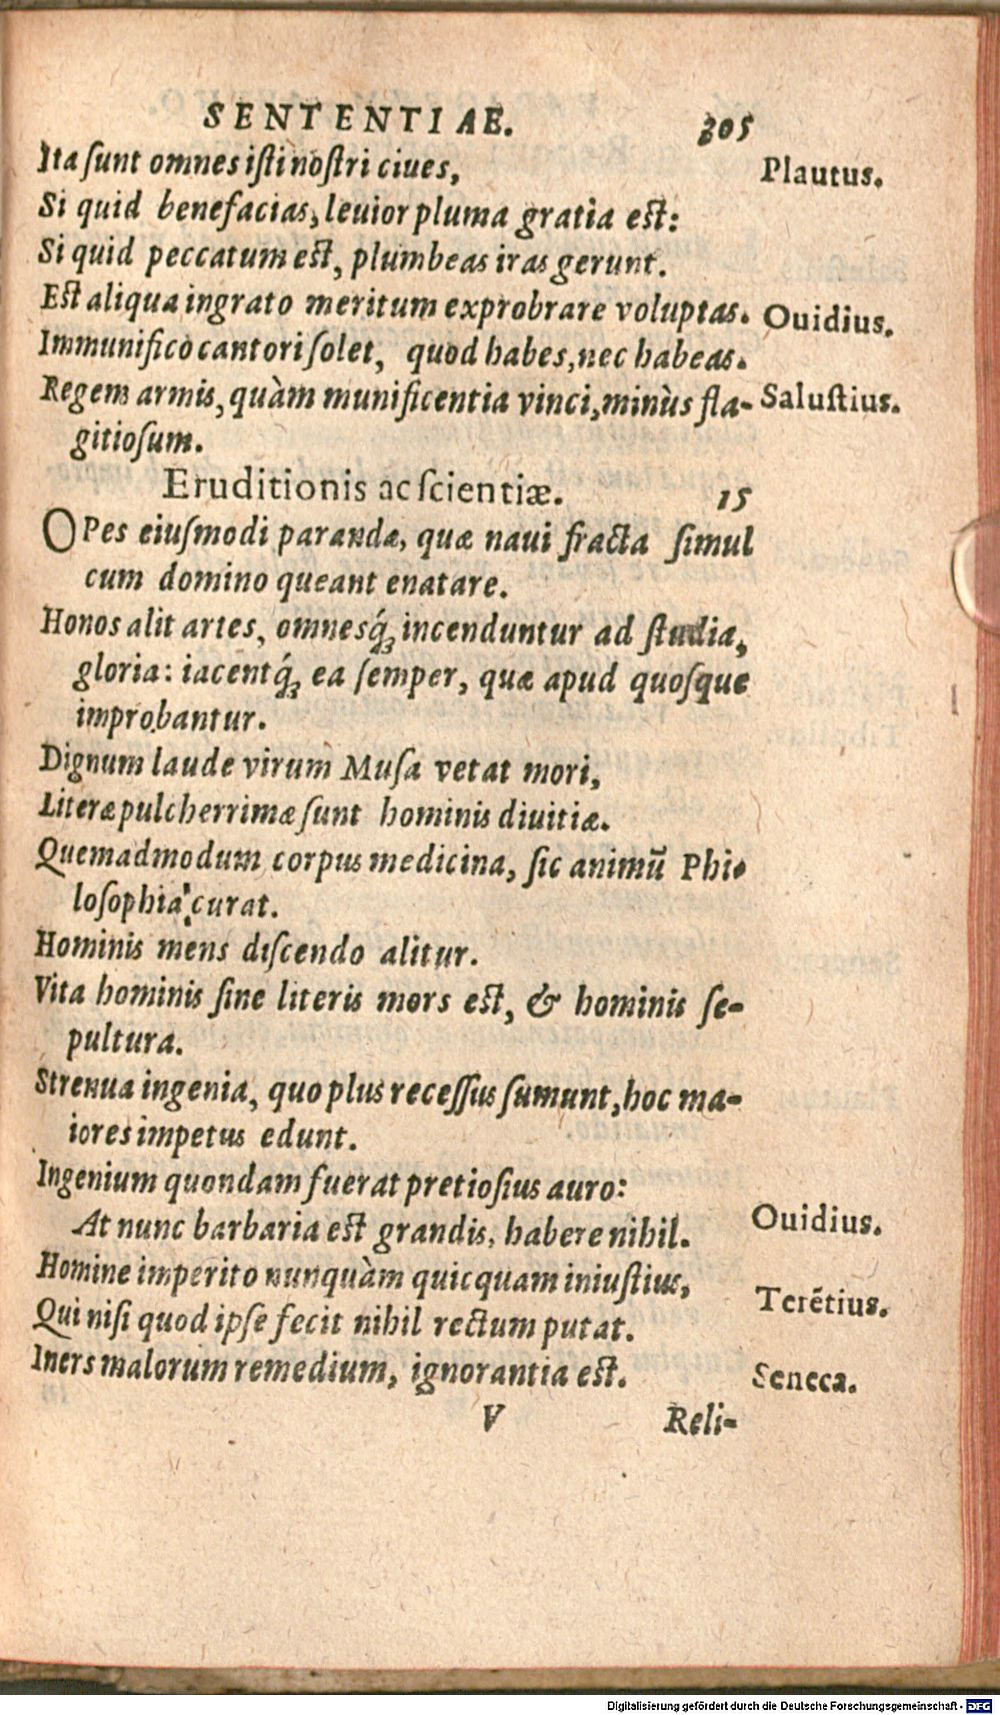 SENTENTIAE. 305
Ita ſunt omnes iſti noſtri ciues, Plautus.
Si quid benefacias, leuior pluma gratia eſt:
Si quid peccatum eſt, plumbeas iras gerunt.
Eſt aliqua ingrato meritum exprobrare voluptas. Ouidius.
Immunifico cantori ſolet, quod habes, nec habeas.
Regem armis, quàm munificentia vinci, minùs fla- Saluſtius.
gitioſum.
Eruditionis ac ſcientiæ. 15
OPes eiuſmodi parandæ, quæ naui fracta ſimul
cum domino queant enatare.
Honos alit artes, omnesq́; incenduntur ad ſtudia,
gloria: iacentq́; ea ſemper, quæ apud quoſque
improbantur.
Dignum laude virum Muſa vetat mori,
Literæ pulcherrimæ ſunt hominis diuitiæ.
Quemadmodum corpus medicina, ſic animũ Phi-
loſophia curat.
Hominis mens diſcendo alitur.
Vita hominis ſine literis mors eſt, & hominis ſe-
pultura.
Strenua ingenia, quo plus receſſus ſumunt, hoc ma-
iores impetus edunt.
Ingenium quondam fuerat pretioſius auro:
At nunc barbaria eſt grandis, habere nihil. Ouidius.
Homine imperito nunquàm quicquam iniuſtius, Terẽtius.
Qui niſi quod ipſe fecit nihil rectum putat.
Iners malorum remedium, ignorantia eſt. Seneca.
V Reli-
Digitalisierung gefördert durch die Deutsche Forschungsgemeinschaft - DFG